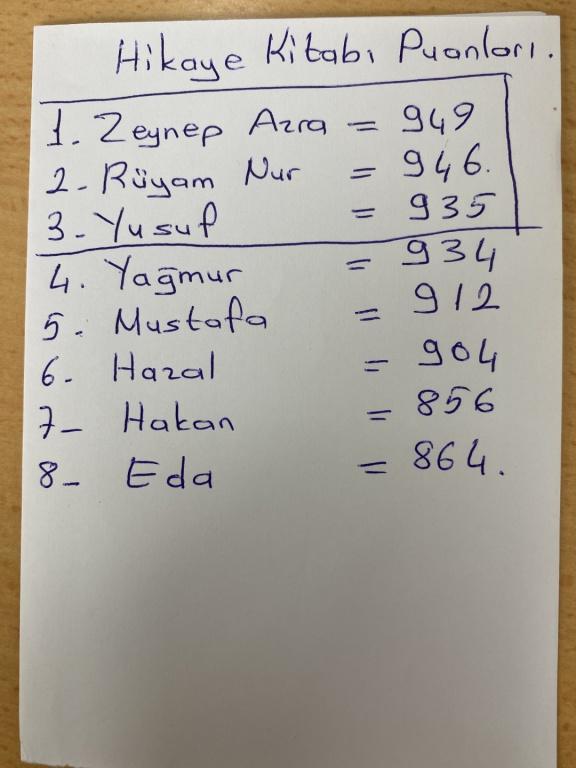 Hikaye Kitabı Puanları.
1. Zeynep Azra = 949
2- Rüyam Nur = 946.
3- Yusuf = 935
4. Yağmur = 934
5. Mustafa = 912
6- Hazal = 904
7- Hakan = 856
8- Eda = 864.